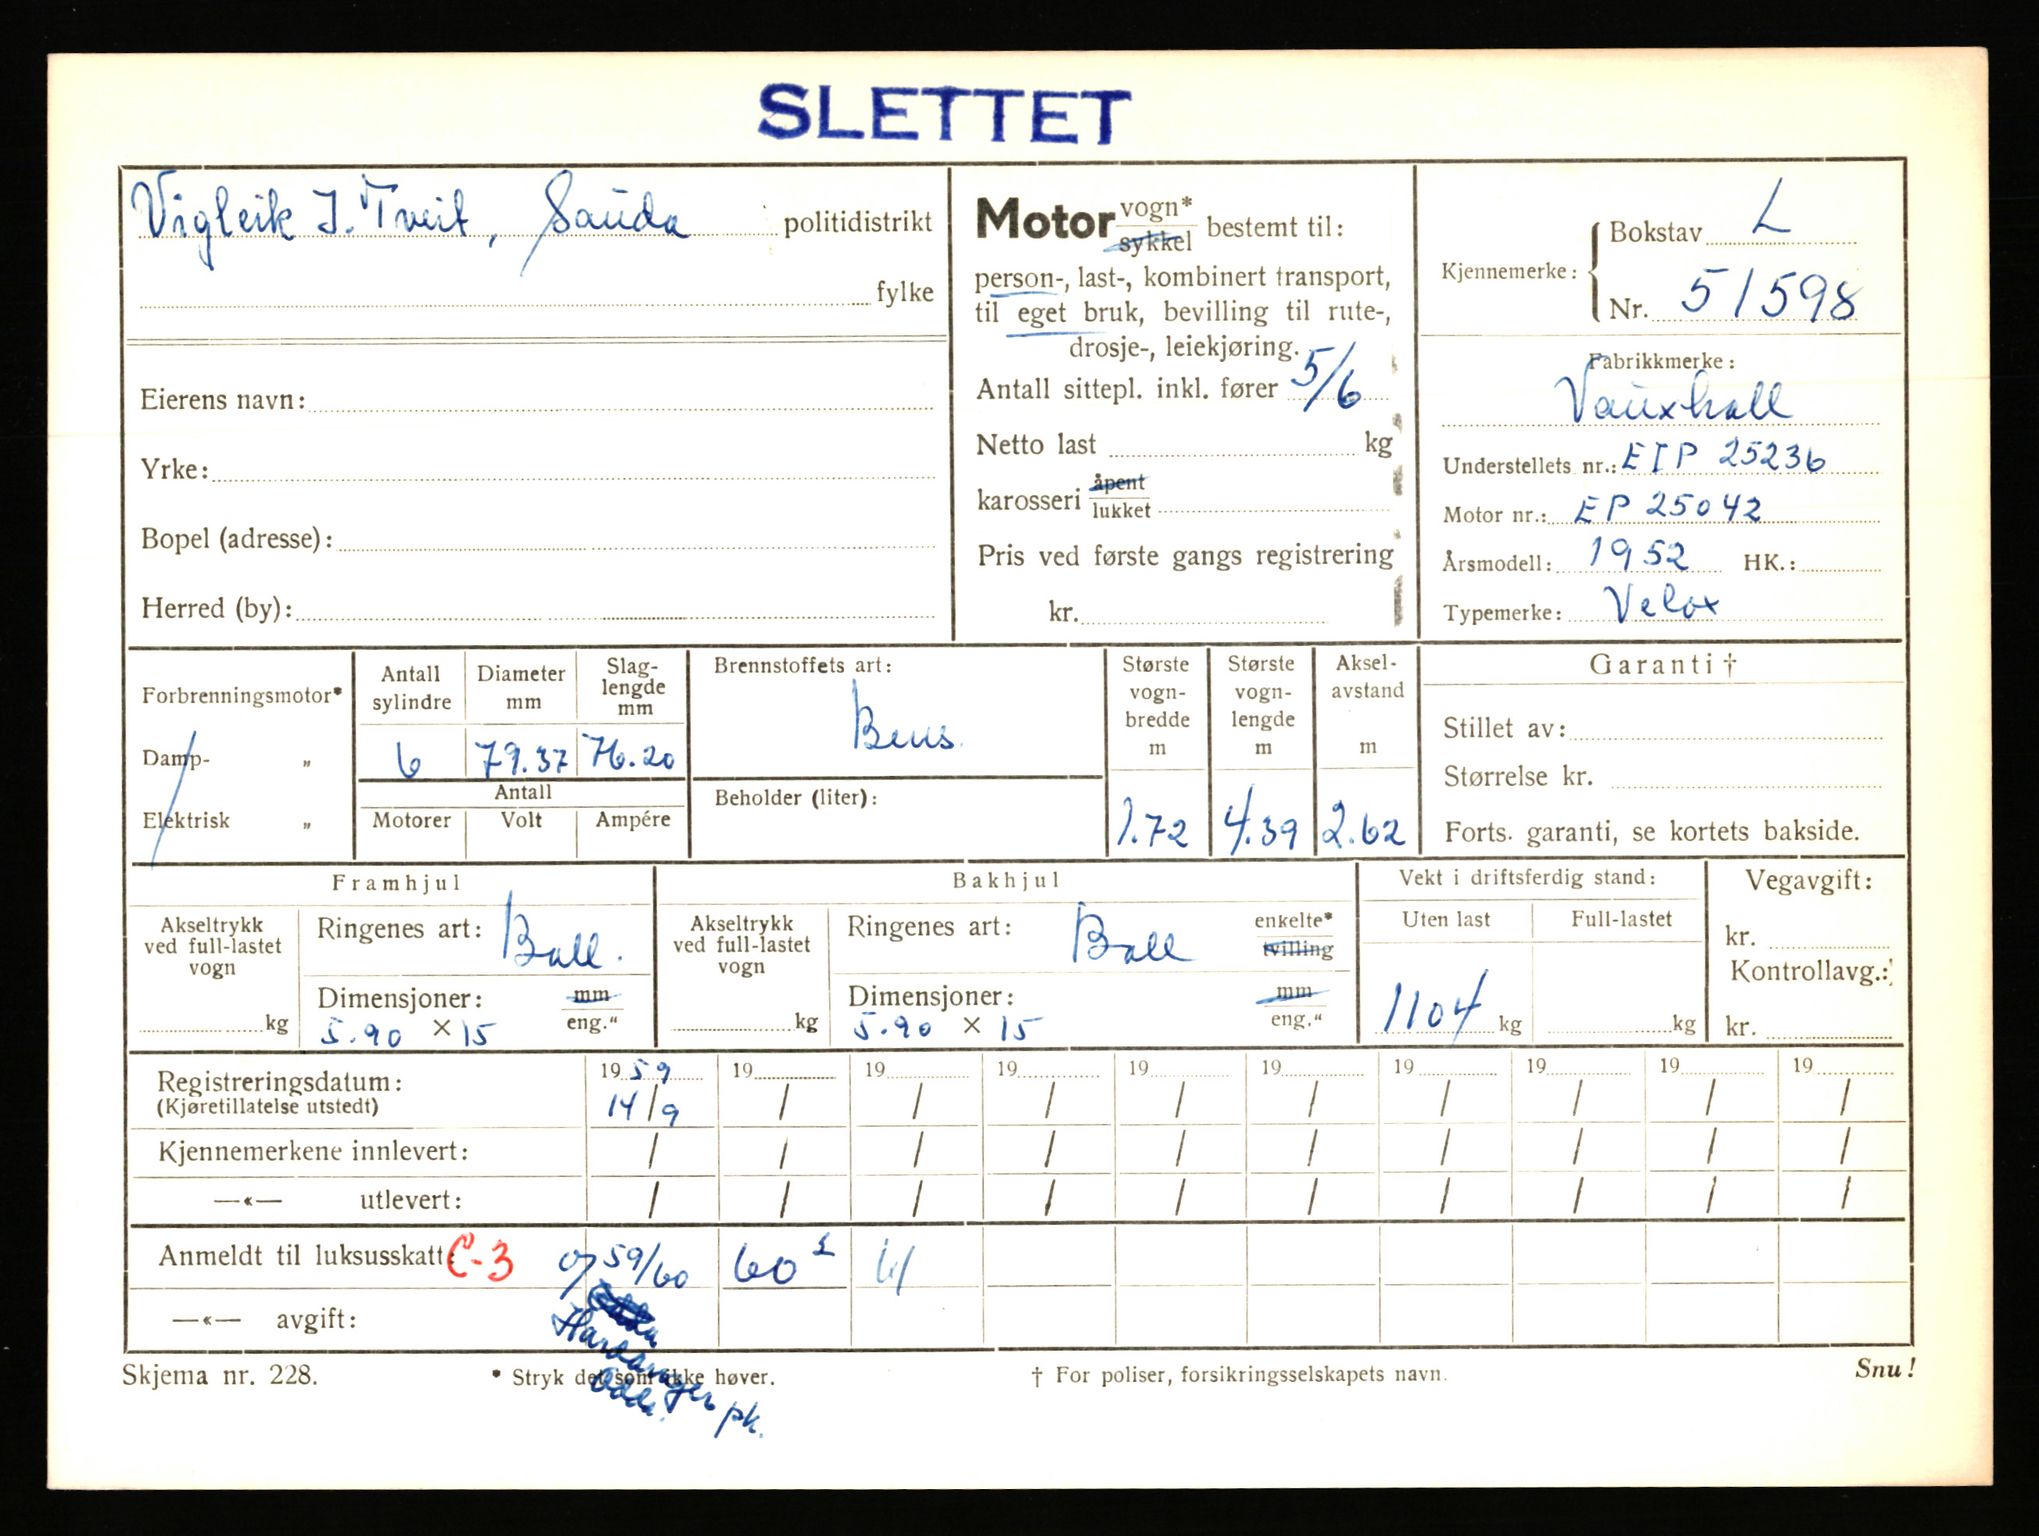 SLETTET
Vigleik J. Tveit, Sauda politidistrikt
fylke
Eierens navn:
Yrke:
Bopel (adresse):
Herred (by):
Motor vogn* sykkel bestemt til:
person-, last-, kombinert transport,
til eget bruk, bevilling til rute-,
drosje-, leiekjøring.
Antall sittepl. inkl. fører 5/6
Netto last kg
karosseri åpent lukket
Pris ved første gangs registrering
kr.
Kjennemerke: Bokstav L
Nr. 51598
Fabrikkmerke:
Vauxhall
Understellets nr.: EIP 25236
Motor nr.: EP 25042
Årsmodell: 1952 HK.:
Typemerke: Velox
Forbrenningsmotor*
Damp- „
Elektrisk „
Antall sylindre
Diameter mm
Slag-lengde mm
6 79.37 76.20
Antall
Motorer Volt Ampére
Brennstoffets art:
Bens.
Beholder (liter):
Største vogn-bredde m
1.72
Største vogn-lengde m
4.39
Aksel-avstand m
2.62
Garanti †
Stillet av:
Størrelse kr.
Forts. garanti, se kortets bakside.
Framhjul
Akseltrykk
ved full-lastet
vogn
kg
Ringenes art: Ball.
Dimensjoner: mm eng."
5.90 × 15
Bakhjul
Akseltrykk
ved full-lastet
vogn
kg
Ringenes art: Ball enkelte* tvilling
Dimensjoner: mm eng."
5.90 × 15
Vekt i driftsferdig stand:
Uten last Full-lastet
1104 kg kg
Vegavgift:
kr.
Kontrollavg.:
kr.
Registreringsdatum: 19 59 19 19 19 19 19 19 19 19 19
(Kjøretillatelse utstedt) 14/9 / / / / / / / / /
Kjennemerkene innlevert: / / / / / / / / / /
—«— utlevert: / / / / / / / / / /
Anmeldt til luksusskatt: C-3 59/60 60 61
—«— avgift:
Hardanger pk.
Odda.
Skjema nr. 228. * Stryk det som ikke høver. † For poliser, forsikringsselskapets navn. Snu!